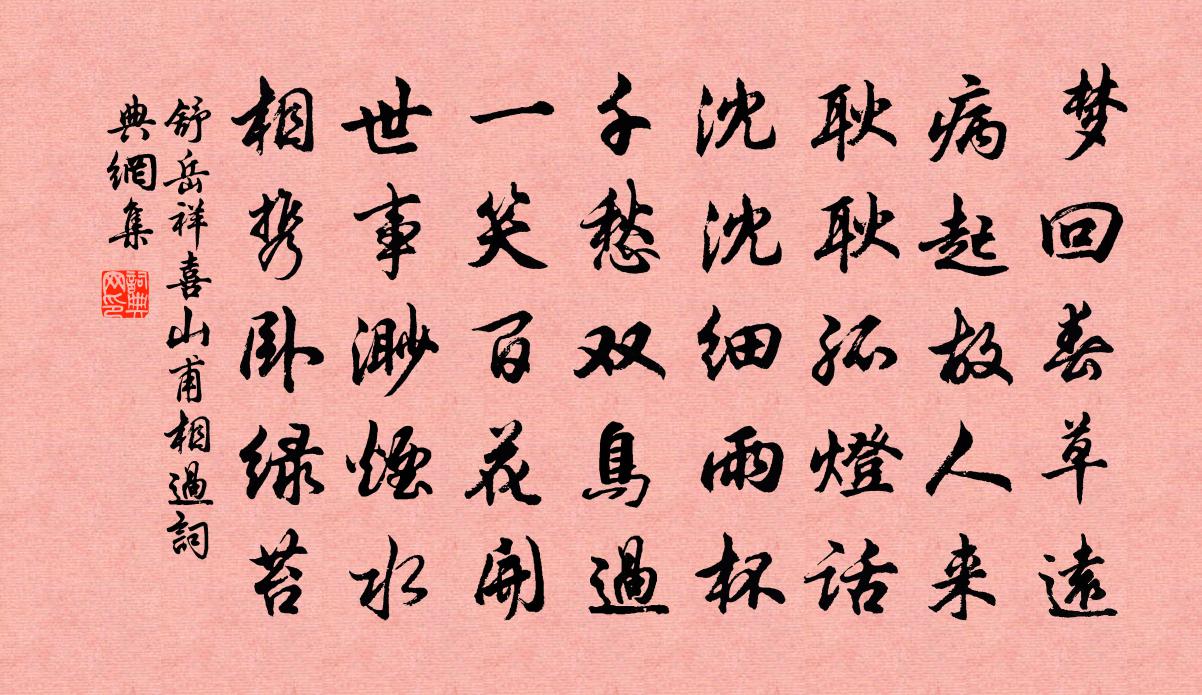 梦回春草远
病起故人来
耿耿孤燈话
沈沈细雨杯
千愁双鳥過
一笑百花開
世事渺煙水
相携卧绿苔
舒岳祥喜山甫相過詞
典網集
詞典网印